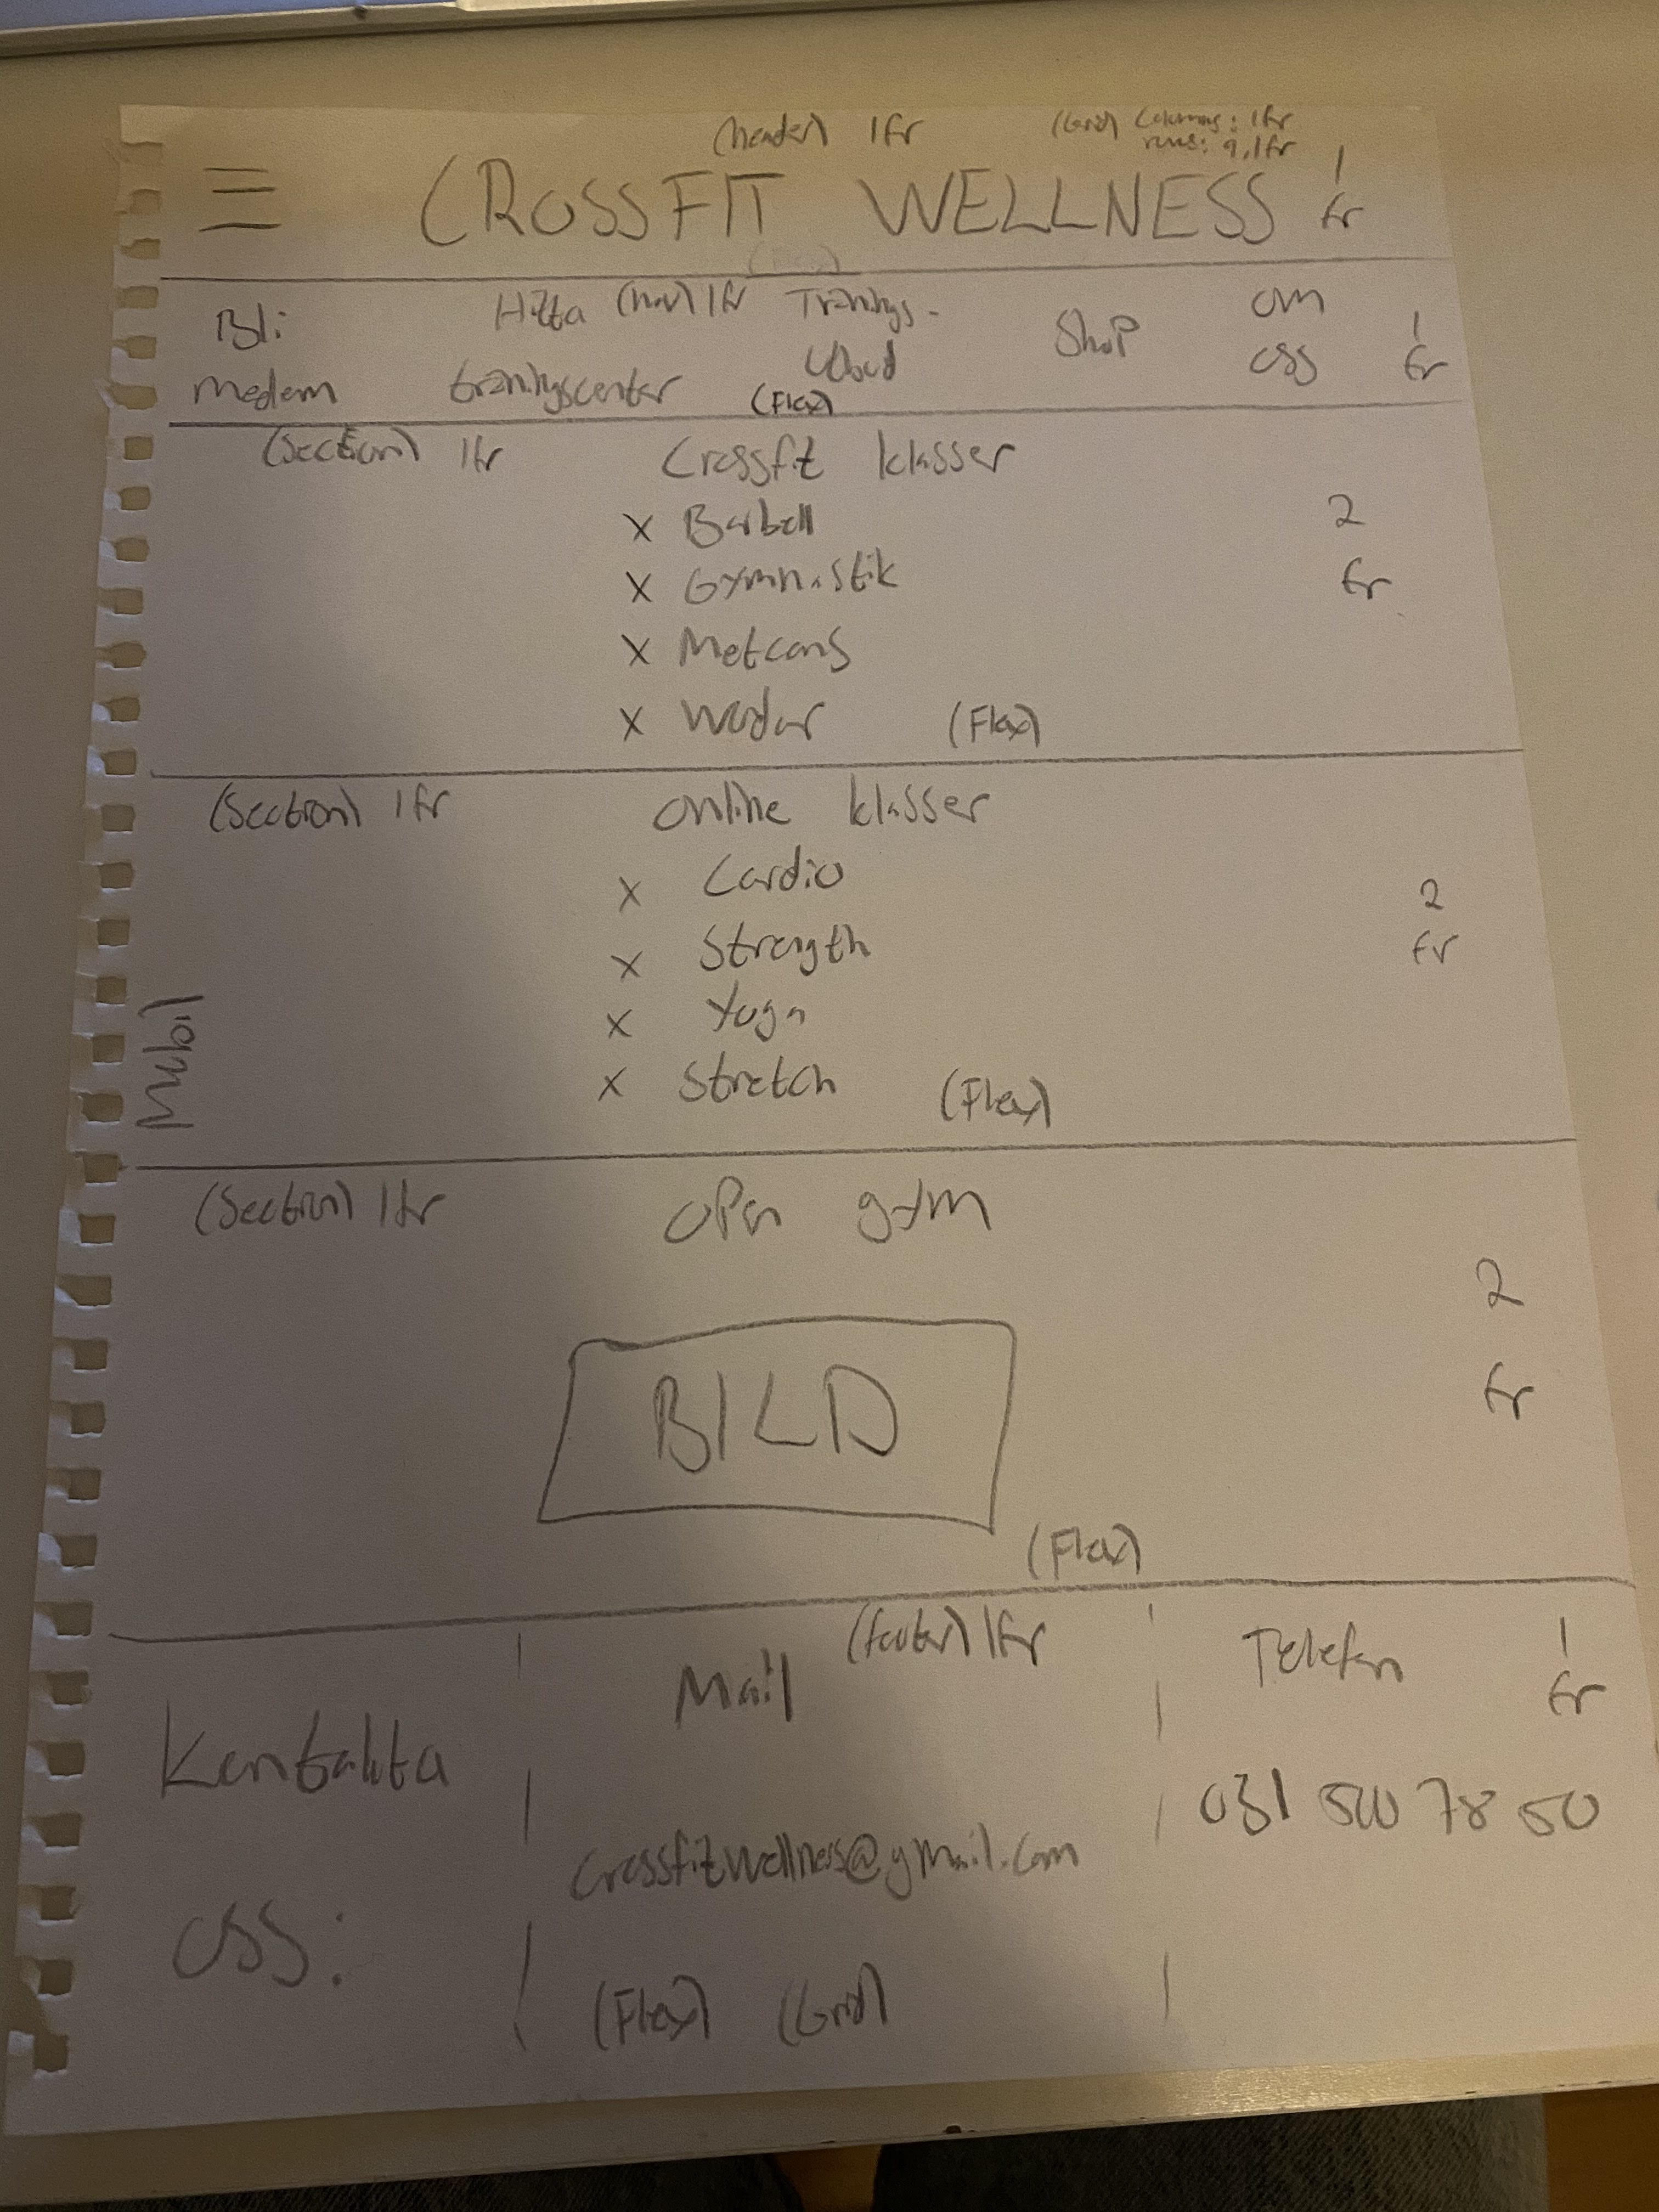 (header) 1fr
(Grid) Columns: 1fr
rows: 9, 1fr
CROSSFIT WELLNESS
1
fr
Bli
medlem
Hitta
träningscenter
(nav) 1fr
Tränings-
utbud
Shop
om
oss
1
fr
(Flex)
(Section) 1fr
Crossfit klasser
x Barbell
x Gymnastik
x Metcons
x Wodar
(Flex)
2
fr
(Section) 1fr
online klasser
x Cardio
x Strength
x Yoga
x Stretch
(Flex)
2
fr
Mobil
(Section) 1fr
open gym
BILD
(Flex)
2
fr
(footer) 1fr
Kontakta
oss:
Mail
crossfitwellness@gmail.com
(Flex) (Grid)
Telefon
031 500 78 50
1
fr